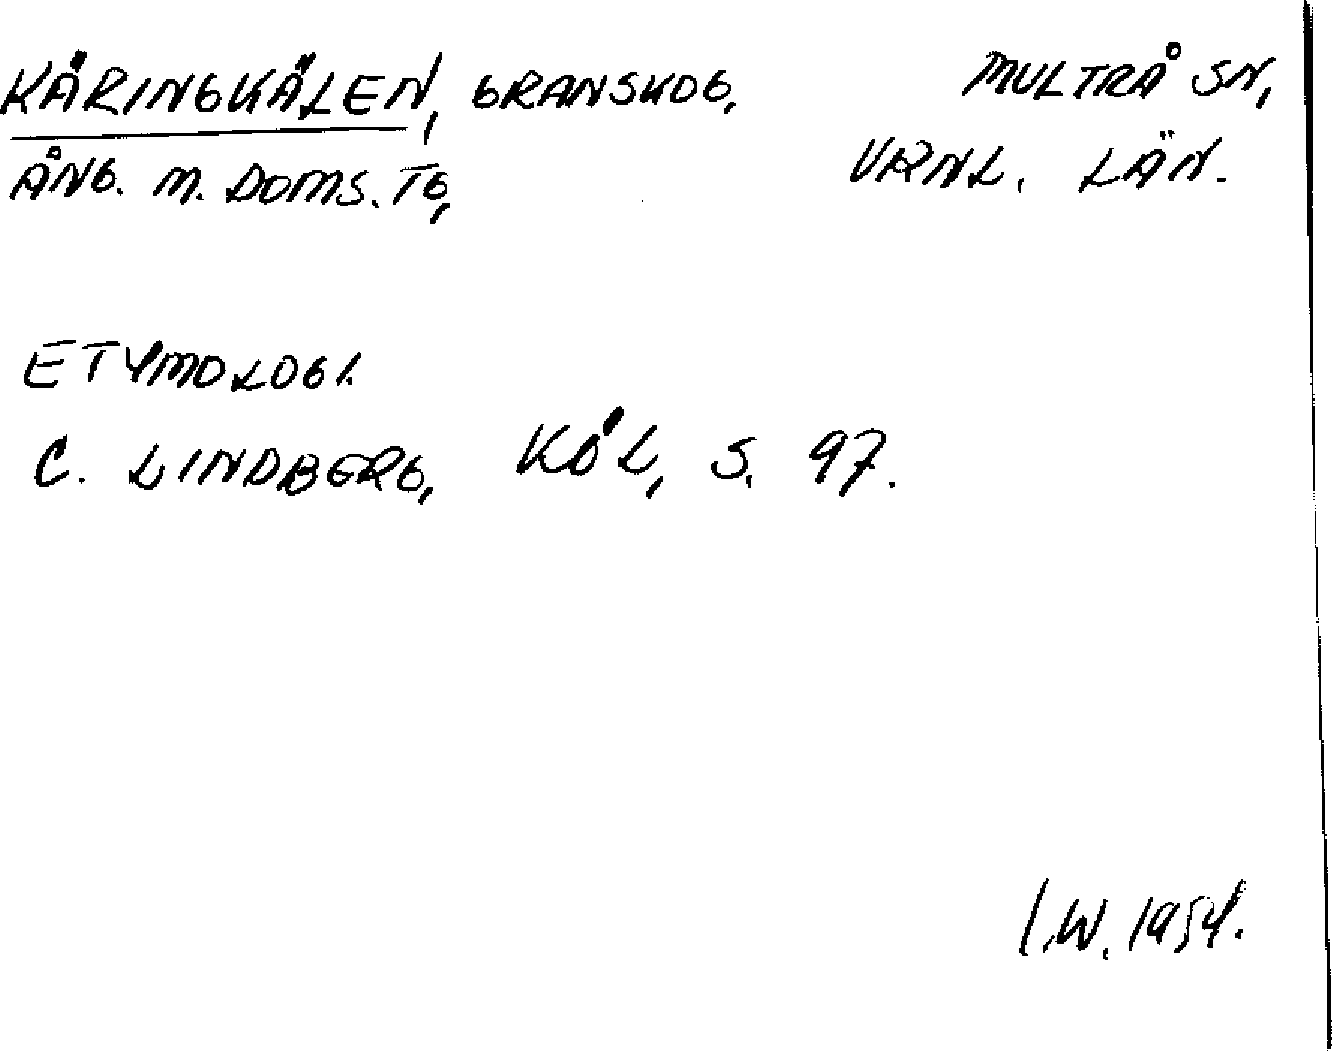 KÄRINGKÄLEN, GRANSKOG, MULTRÅ SN,
ÅNG. M. DOMS. TG, VRNL. LÄN.
ETYMOLOGI.
C. LINDBERG, KÖL, S. 97.
I.W. 1954.